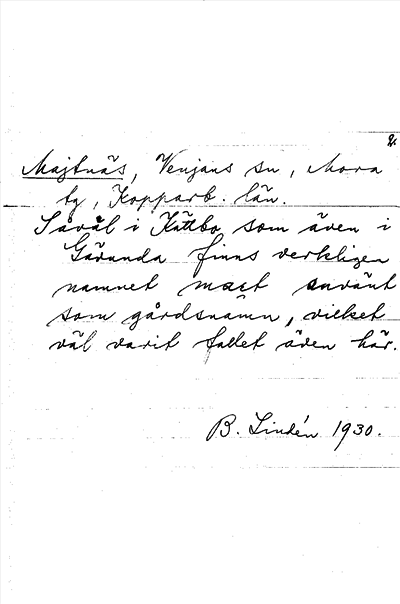 2.
Majtnäs, Venjans sn, Mora
tg, Kopparb. län.
Såväl i Kättbo som även i
Gävunda finns verkligen
namnet mait använt
som gårdsnamn, vilket
väl varit fallet även här.
B. Lindén 1930.